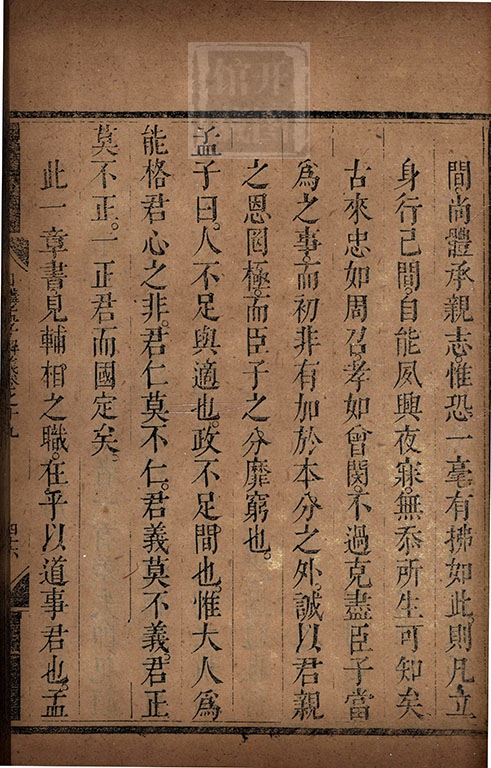 間尚體承親志惟恐一毫有拂如此則凡立
身行己間自能夙興夜寐無忝所生可知矣
古來忠如周召孝如曾閔不過克盡臣子當
爲之事而初非有加於本分之外誠以君親
之恩罔極而臣子之分靡窮也
孟子曰人不足與適也政不足間也惟大人爲
能格君心之非君仁莫不仁君義莫不義君正
莫不正一正君而國定矣
此一章書見輔相之職在乎以道事君也孟
四六